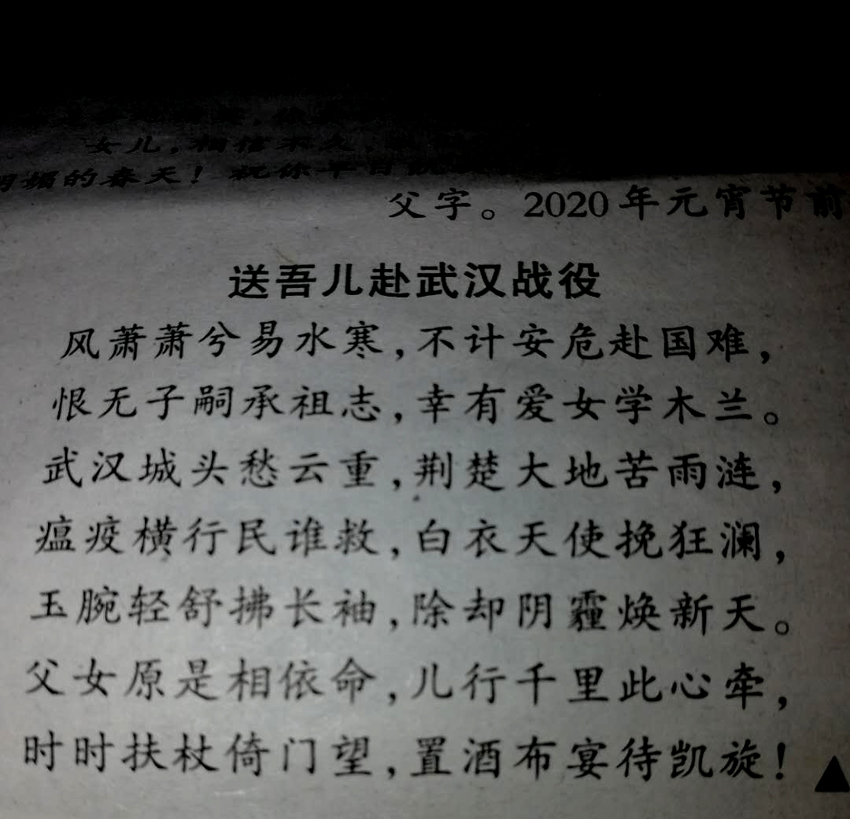 女儿，相信不久，
明媚的春天！祝你平日
父字。2020年元宵节前
送吾儿赴武汉战役
风萧萧兮易水寒，不计安危赴国难，
恨无子嗣承祖志，幸有爱女学木兰。
武汉城头愁云重，荆楚大地苦雨涟，
瘟疫横行民谁救，白衣天使挽狂澜，
玉腕轻舒拂长袖，除却阴霾焕新天。
父女原是相依命，儿行千里此心牵，
时时扶杖倚门望，置酒布宴待凯旋！